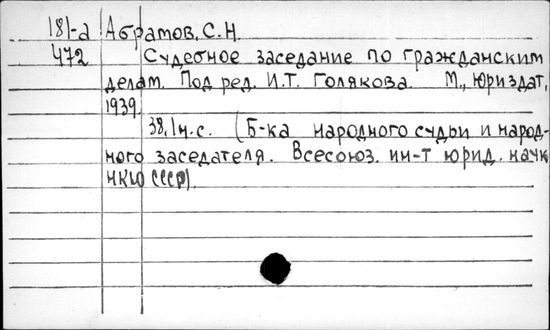 181-а Абрамов, С.Н.
472 Судебное заседание по гражданским
делам. Под ред. И.Т. Голякова. М., Юриздат,
1939.
38, 1н.с. (Б-ка народного судьи и народ-
ного заседателя. Всесоюз. ин-т юрид. наук
НКЮ СССР).